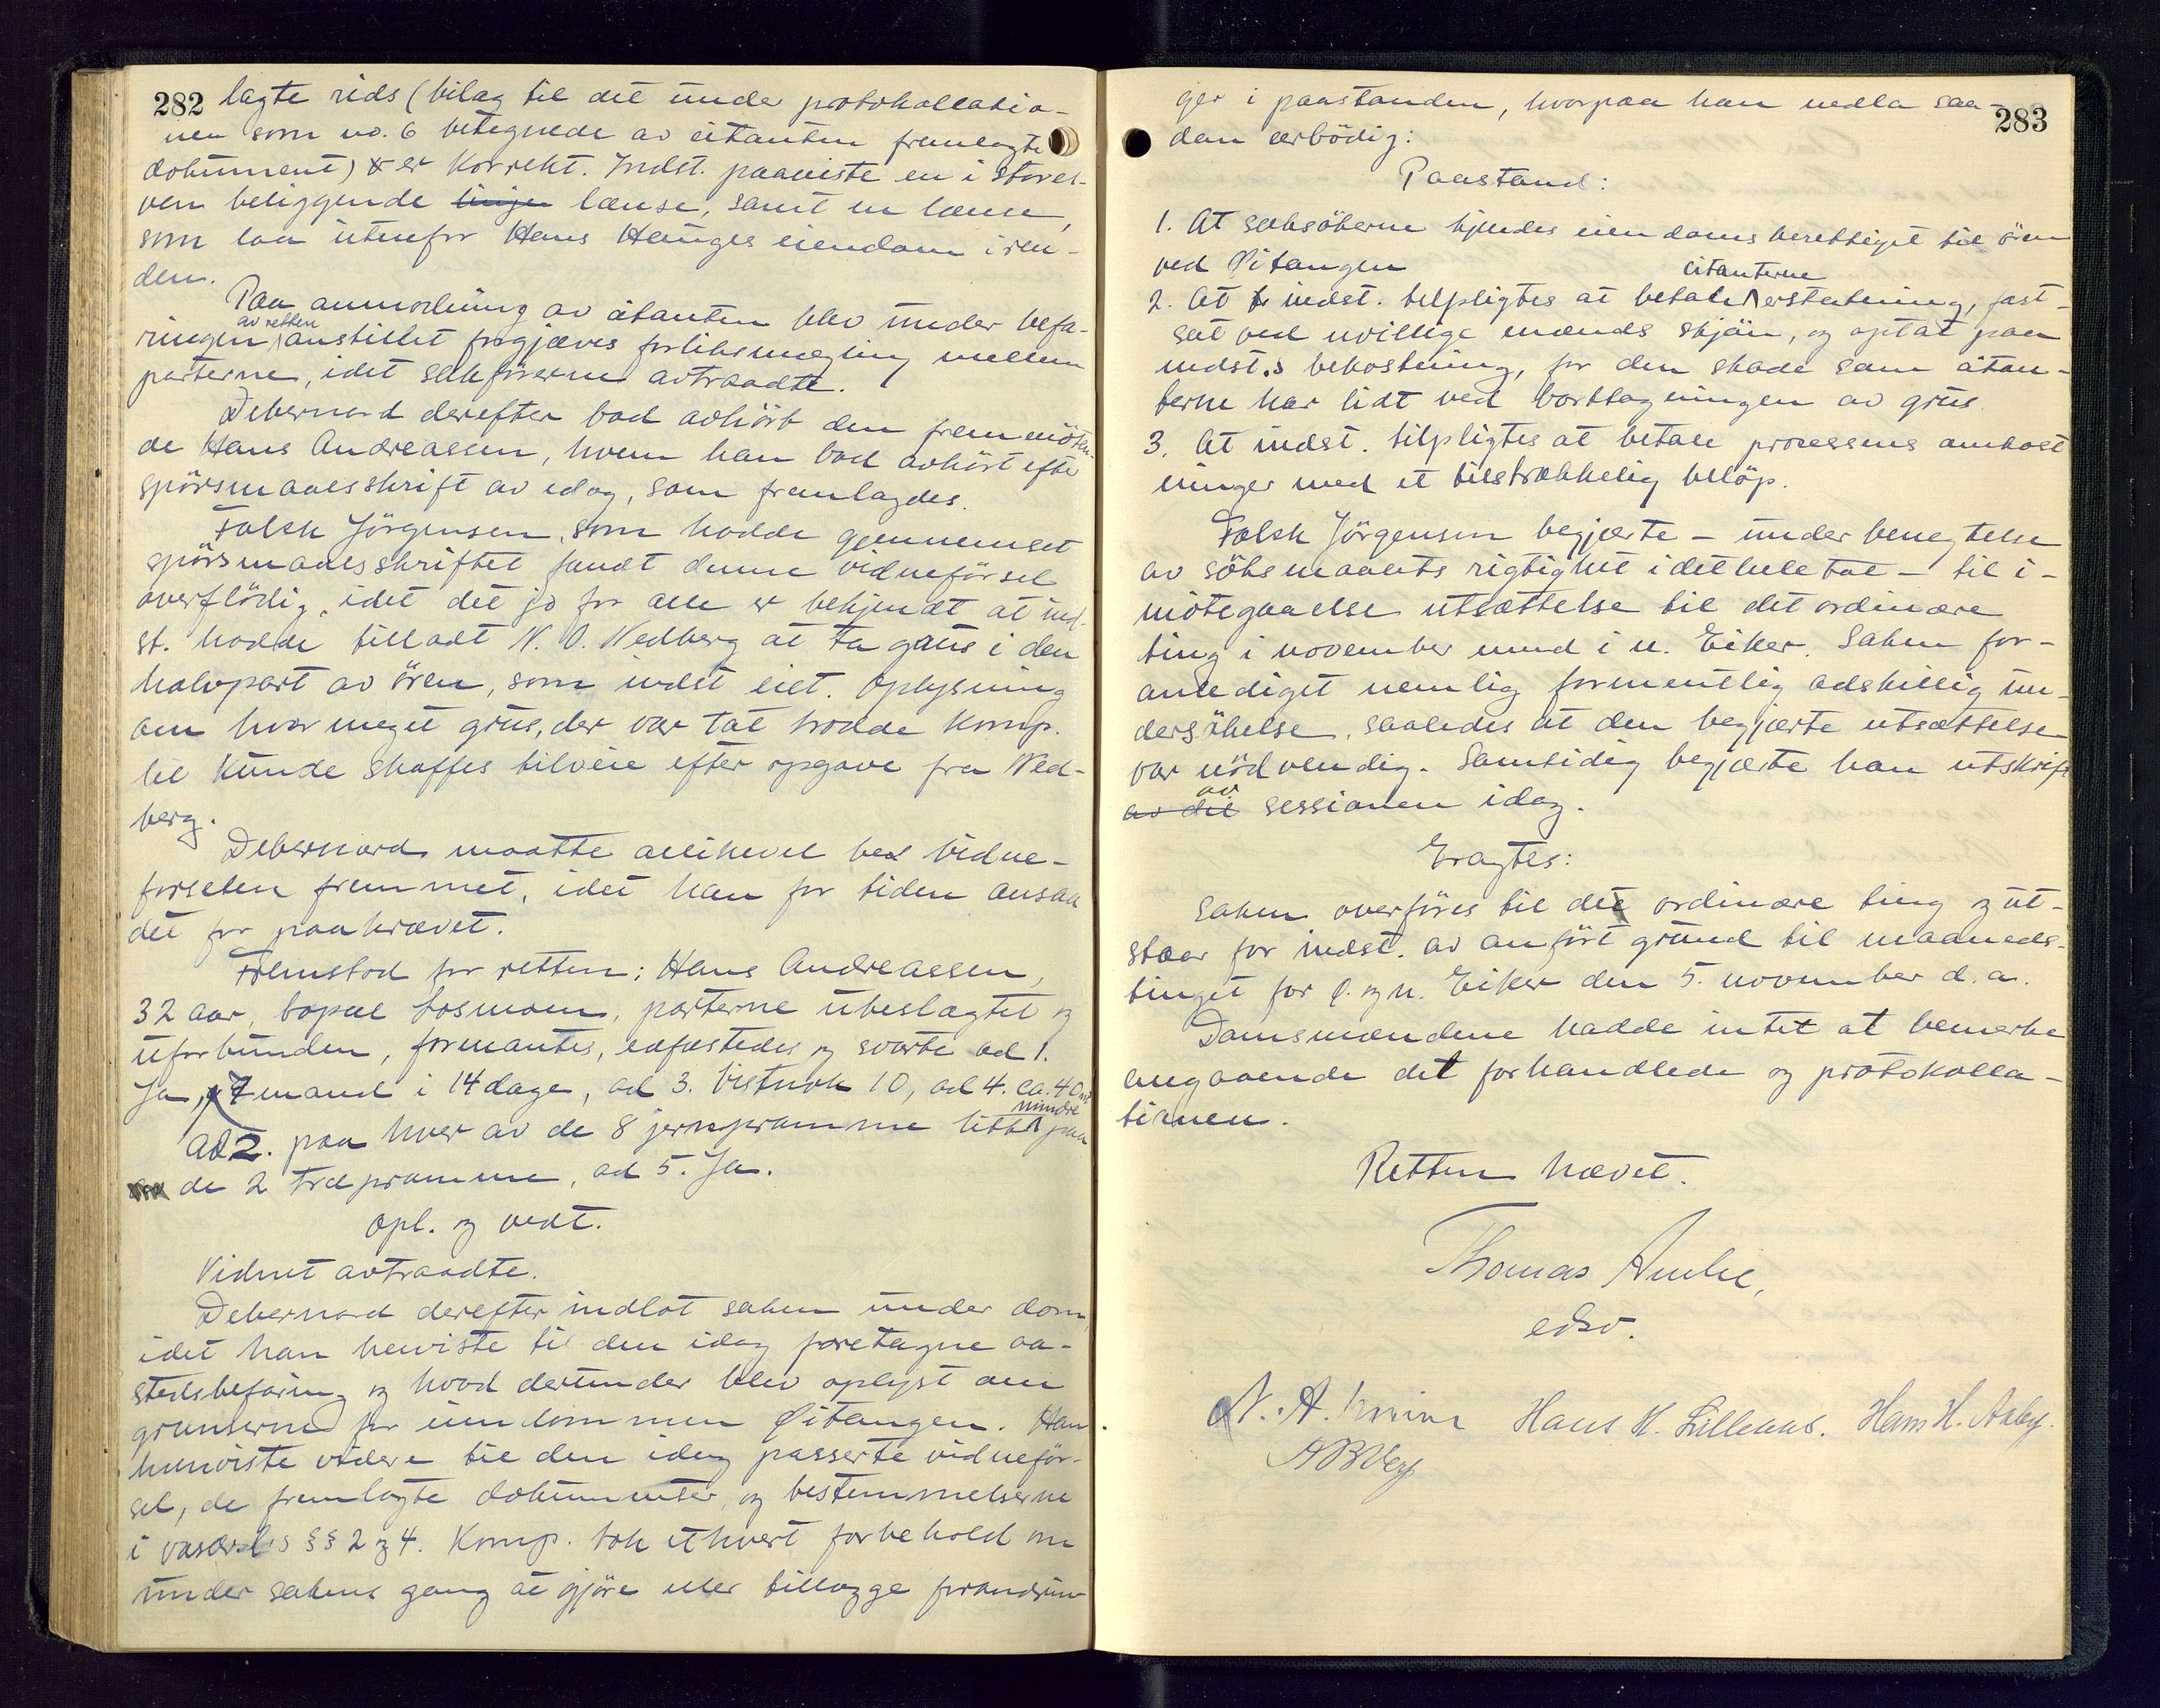 282
lagte rids (bilag til det under protokollatio-
nen som no. 6 betegnede av citanten fremlagte
dokument) er korrekt. Indst. paaviste en i storel-
ven beliggende linjer lænse, samt en lænse,
som laa utenfor Hans Hauges eiendom i ren-
den.
Paa anmodning av citanten blev under befa-
ringen av retten anstillet forgjæves forliksmegling mellem
parterne, idet sakførerne avtraadte.
Debernard derefter bad avhört den fremmöten-
de Hans Andreassen, hvem han bad avhört efter
spörsmaalsskrift av idag, som fremlagdes.
Falck Jörgensen, som hadde gjennemset
spörsmaalsskriftet fandt denne vidneførsel
overflödig, idet det jo for alle er bekjendt at ind-
st. hadde tilladt N. O. Nedberg at ta grus i den
halvpart av ören, som indst eiet. Oplysning
om hvor meget grus, der var tat trodde komp.
til kunde skaffes tilveie efter opgave fra Ned-
berg.
Debernard maatte allikevel bed vidne-
førselen fremmet, idet han for tiden ansaa
det for paakrævet.
Fremstod for retten: Hans Andreassen,
32 aar, bopæl Losmoen, parterne ubeslagtet og
uforbunden, formantes, edfæstedes og svarte ad 1.
Ja, 7 mand i 14 dage, ad 3. Vistnok 10, ad 4. ca. 40 m³
ad 2. paa hver av de 8 jernpramme litt mindre paa
de 2 træpramme, ad 5. Ja.
Opl. og vedt.
Vidnet avtraadte.
Debernard derefter indlot saken under dom,
idet han henviste til den idag foretagne aa-
stedsbefaring og hvad derunder blev oplyst om
grænserne for eiendommen Øitangen. Han
henviste videre til den idag passerte vidneför-
sel, de fremlagte dokumenter, og bestemmelserne
i vasdr.l.s §§ 2 og 4. Komp. tok ethvert forbehold om
under sakens gang at gjöre eller tillægge forandrin-
283
ger i paastanden, hvorpaa han nedla saa-
dan ærbödig:
Paastand:
1. At saksökerne kjendes eiendomsberettiget til ören
ved Øitangen
2. At indst. tilpligtes at betale citanterne erstatning, fast-
sat ved uvillige mænds skjön, og optat paa
indst.s bekostning, for den skade som citan-
terne har lidt ved borttagningen av grus.
3. At indst. tilpligtes at betale processens omkost
ninger med et tilstrækkelig belöp.
Falck Jörgensen begjærte – under benegtelse
av söksmaalets rigtighet i det hele tat – til i-
mötegaaelse utsættelse til det ordinære
ting i november maned i n. Eiker. Saken for-
anlediget nemlig formentlig adskillig un-
dersökelse, saaledes at den begjærte utsættelse
var nödvendig. Samtidig begjærte han utskrift
av det av sessionen idag.
Eragtes:
Saken overföres til det ordinære ting og ut-
staar for indst. av anfört grund til maaneds-
tinget for ø. og n. Eiker den 5. november d. a.
Domsmændene hadde intet at bemerke
angaaende det forhandlede og protokolla-
tionen.
Retten hævet.
Thomas Amlie,
edsv.
N. A. Hans H. Lilleaas. Hans H. Aaby.